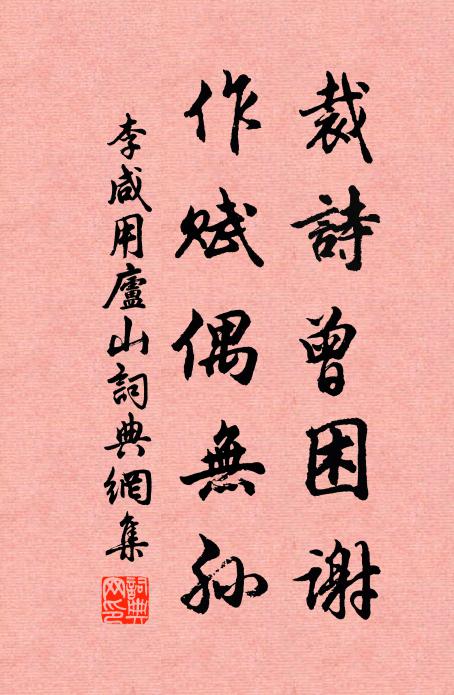 裁詩曾困謝
作賦偶無孫
李咸用廬山詞典網集
詞典網印